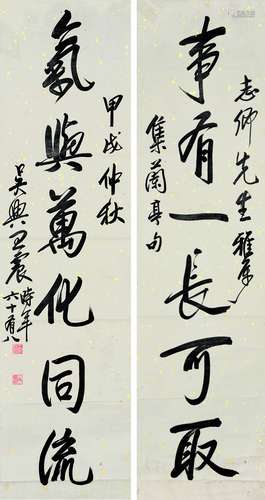 志卿先生雅屬
事有一長可取
集蘭亭句
氣與萬化同流
甲戌仲秋
吳興王震時年
六十有八